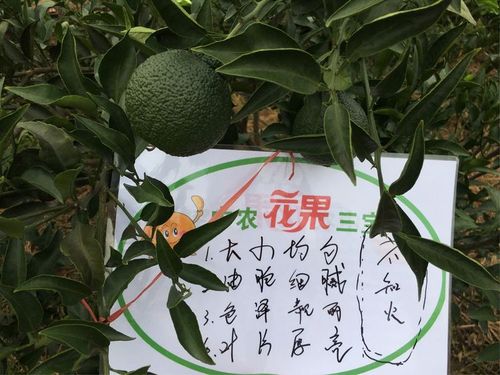 农花果三宝
1. 大小均匀
2. 油胞细腻
3. 色泽靓丽
4. 叶片厚亮
不知火